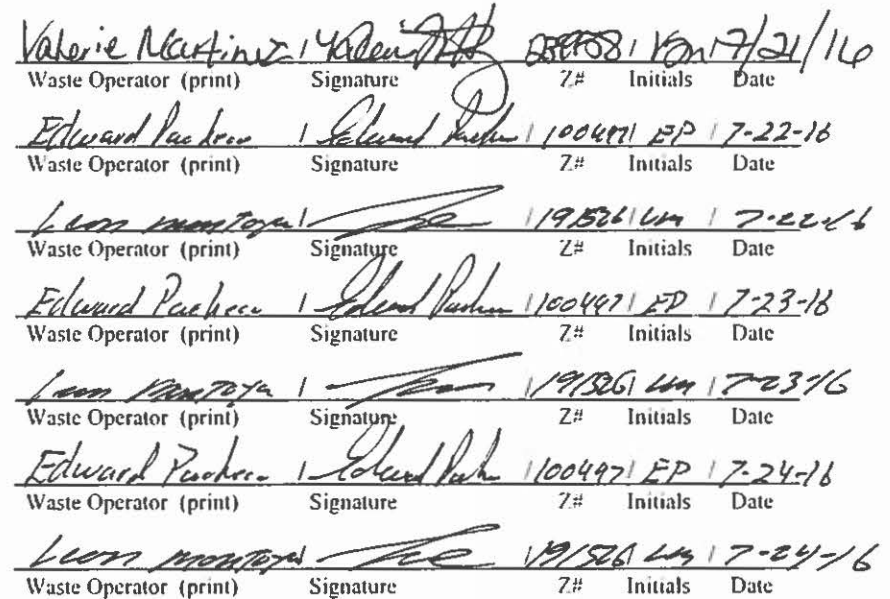 Valerie Martinez / / Vm / 7/21/16
Waste Operator (print) Signature Z# Initials Date
Edward Pacheco / Edward Pacheco / 100497 / EP / 7-22-16
Waste Operator (print) Signature Z# Initials Date
Leon Montoya / / 191526 / LM / 7-22-16
Waste Operator (print) Signature Z# Initials Date
Edward Pacheco / Edward Pacheco / 100497 / EP / 7-23-16
Waste Operator (print) Signature Z# Initials Date
Leon Montoya / / 191526 / LM / 7-23-16
Waste Operator (print) Signature Z# Initials Date
Edward Pacheco / Edward Pacheco / 100497 / EP / 7-24-16
Waste Operator (print) Signature Z# Initials Date
Leon Montoya / / 191526 / LM / 7-24-16
Waste Operator (print) Signature Z# Initials Date